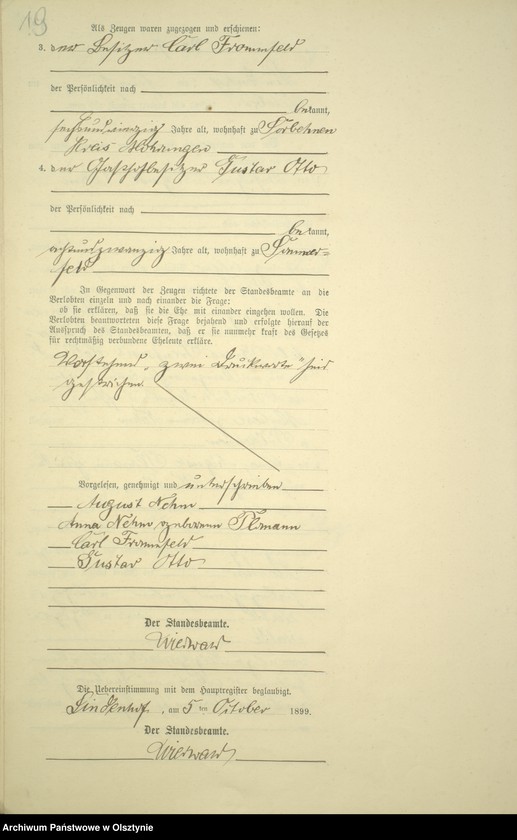 19
Als Zeugen waren zugezogen und erschienen:
3. der Besitzer Carl Frommfeld
der Persönlichkeit nach
bekannt,
Jahre alt, wohnhaft zu Sorbehnen
Kreis Mohrungen
4. der Gasthofbesitzer Gustav Otto
der Persönlichkeit nach
bekannt,
achtundzwanzig Jahre alt, wohnhaft zu Sommer-
feld
In Gegenwart der Zeugen richtete der Standesbeamte an die
Verlobten einzeln und nach einander die Frage:
ob sie erklären, daß sie die Ehe mit einander eingehen wollen. Die
Verlobten beantworteten diese Frage bejahend und erfolgte hierauf der
Ausspruch des Standesbeamten, daß er sie nunmehr kraft des Gesetzes
für rechtmäßig verbundene Eheleute erkläre.
Vorstehend zwei Druckworte sind
gestrichen.
Vorgelesen, genehmigt und unterschrieben
August Nehm
Anna Nehm geborene
Carl Frommfeld
Gustav Otto
Der Standesbeamte.
Die Uebereinstimmung mit dem Hauptregister beglaubigt.
Lindenhof, am 5ten October 1899.
Der Standesbeamte.
Archiwum Państwowe w Olsztynie